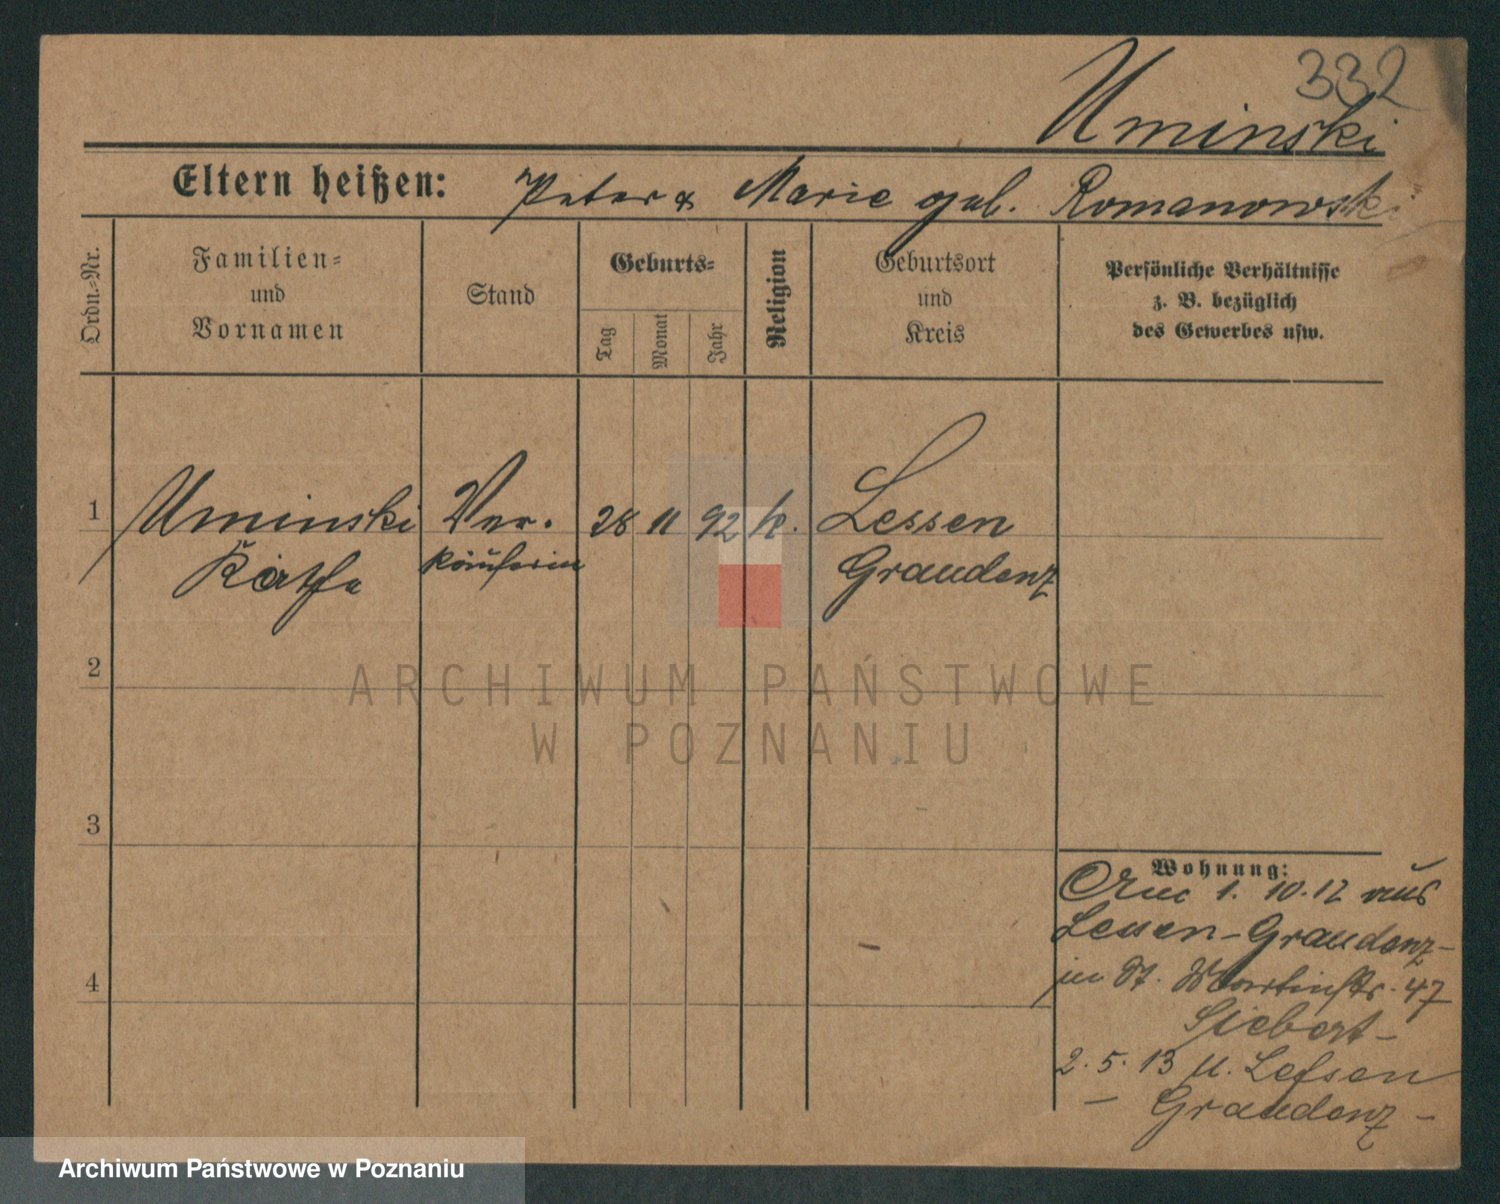 332
Uminski
Eltern heißen: Peter & Marie geb. Romanowski
Ordn.-Nr.
Familien-
und
Vornamen
Stand
Geburts-
Tag
Monat
Jahr
Religion
Geburtsort
und
Kreis
Persönliche Verhältnisse
z. B. bezüglich
des Gewerbes usw.
1 Uminski Ver. 28 11 92 k. Lessen
Käthe käuferin Graudenz
2
ARCHIWUM PAŃSTWOWE
W POZNANIU
3
Wohnung:
1. 10. 12 aus
Lessen-Graudenz-
in St. Martinstr. 47
Siebert-
4
2. 5. 13 n. Lessen
- Graudenz -
Archiwum Państwowe w Poznaniu